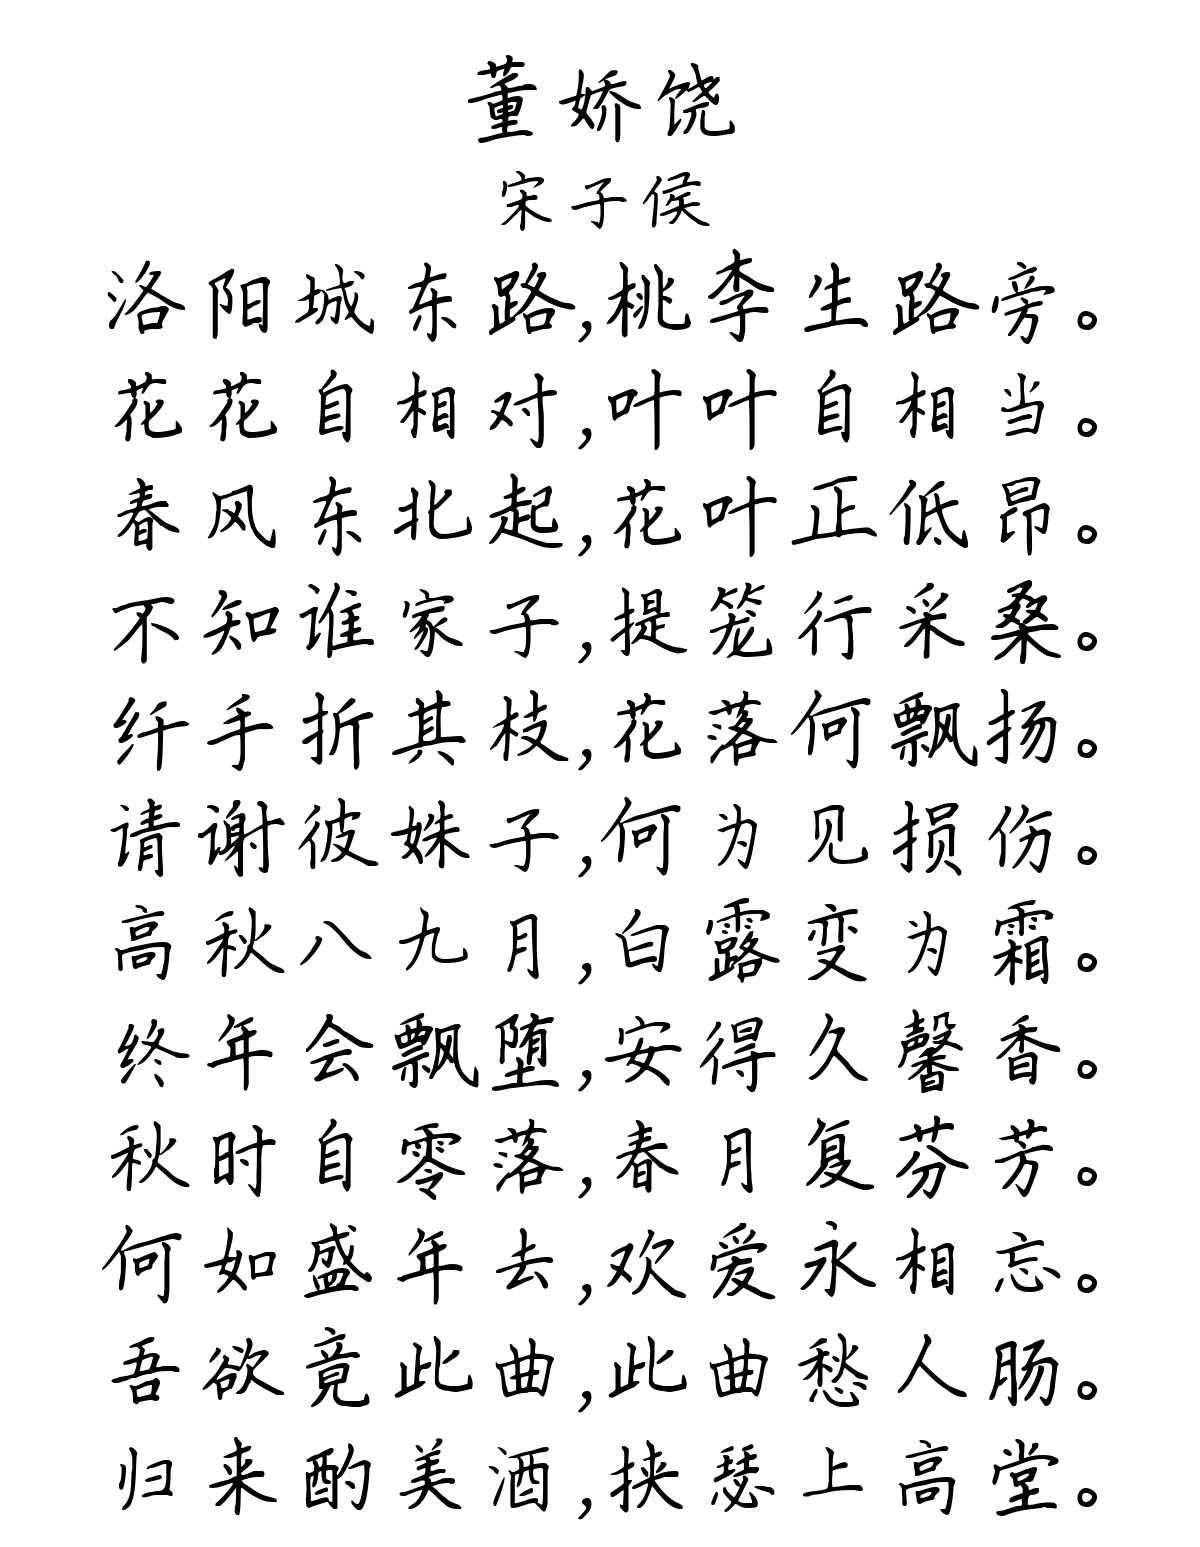 董娇饶
宋子侯
洛阳城东路,桃李生路旁。
花花自相对,叶叶自相当。
春风东北起,花叶正低昂。
不知谁家子,提笼行采桑。
纤手折其枝,花落何飘扬。
请谢彼姝子,何为见损伤。
高秋八九月,白露变为霜。
终年会飘堕,安得久馨香。
秋时自零落,春月复芬芳。
何如盛年去,欢爱永相忘。
吾欲竟此曲,此曲愁人肠。
归来酌美酒,挟瑟上高堂。